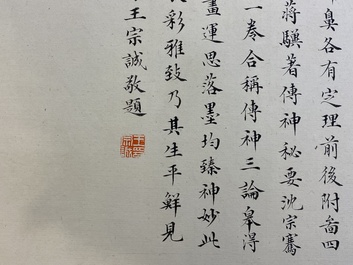 鼻各有定理前後附啚四
蔣驥著傳神秘要沈宗騫
一卷合稱傳神三論皋得
畫運思落墨均臻神妙此
彩雅致乃其生平鮮見
王宗誠敬題